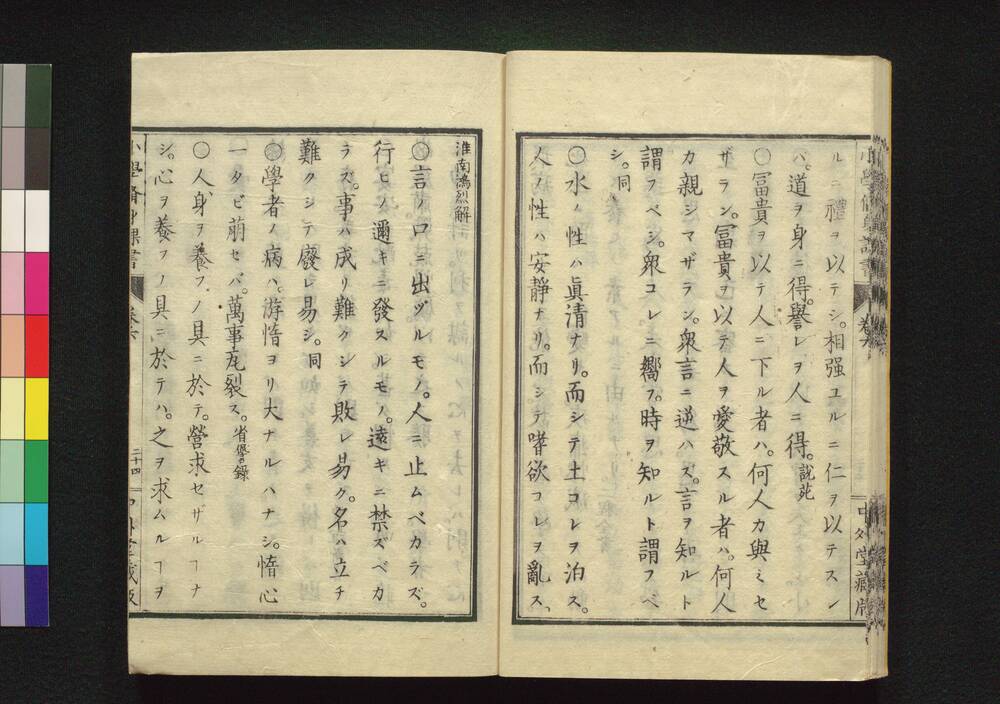 ルニ禮ヲ以テシ。相强ユルニ仁ヲ以テスレ
バ。道ヲ身ニ得。譽レヲ人ニ得。説苑
〇冨貴ヲ以テ人ニ下ル者ハ。何人カ與ミセ
ザラン。冨貴ヲ以テ人ヲ愛敬スル者ハ。何人
カ親シマザラン。衆言ニ逆ハズ。言ヲ知ルト
謂フベシ。衆コレニ嚮フ。時ヲ知ルト謂フベ
シ。同
〇水ノ性ハ眞清ナリ。而シテ土コレヲ汨ス。
人ノ性ハ安靜ナリ。而シテ嗜欲コレヲ亂ス、
中外堂藏版
淮南鴻烈解
〇言ノ口ニ出ヅルモノ。人ニ止ムベカラズ。
行ヒノ邇キニ發スルモノ。遠キニ禁ズベカ
ラズ。事ハ成リ難クシテ敗レ易ク。名ハ立チ
難クシテ廢レ易シ。同
〇學者ノ病ハ。游惰ヨリ大ナルハナシ。惰心
一タビ萠セバ。萬事瓦裂ス。省𠎝録
〇人身ヲ養フノ具ニ於テ。營求セザルヿナ
シ。心ヲ養フノ具ニ於テハ。之ヲ求ムルヿヲ
小學脩身課書 卷六 二十四 中外堂藏版